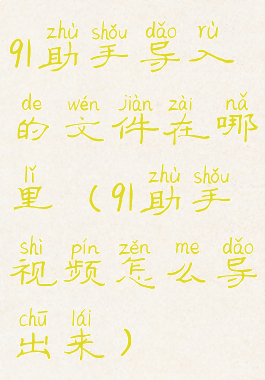 zhù shǒu dǎo rù
91助手导入
de wén jiàn zài nǎ
的文件在哪
lǐ zhù shǒu
里（91助手
shì pín zěn me dǎo
视频怎么导
chū lái
出来）